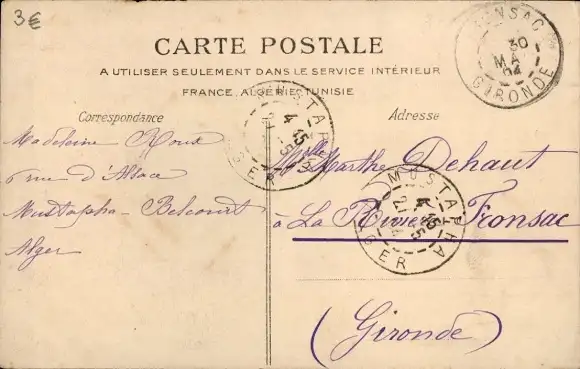 3€
CARTE POSTALE
A UTILISER SEULEMENT DANS LE SERVICE INTÉRIEUR
FRANCE, ALGÉRIE, TUNISIE
Correspondance
Adresse
Madeleine Roux
6 rue d'Alsace
Mustapha-Belcourt
Alger
Mlle Marthe Dehaut
à La Rivière Fronsac
(Gironde)
FRONSAC
30
MAI
04
GIRONDE
MUSTAPHA
4 15
ALGER
MUSTAPHA
4 15
ALGER